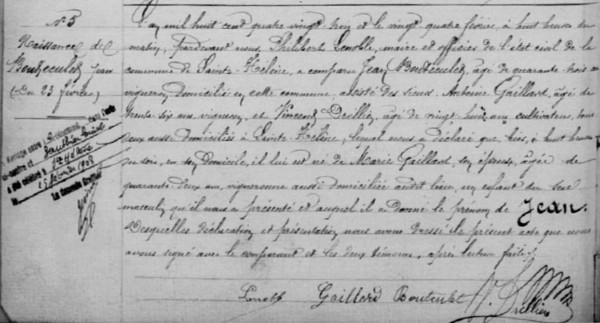 N° 5
Naissance de
Jean
(Du 23 février)
L'an mil huit cent quatre vingt trois et le vingt quatre février, à huit heures du
matin, pardevant nous, Philibert Lenoble, maire et officier de l'état civil de la
commune de Sainte-Hélène, a comparu Jean Bouteculet, âgé de quarante-trois ans
vigneron domicilié en cette commune, assisté des sieurs Antoine Gaillard, âgé de
trente six ans, vigneron, et Vincent Drillien, âgé de vingt huit ans, cultivateur, tous
deux aussi domiciliés à Sainte-Hélène, lequel nous a déclaré que hier, à huit heures
du soir, en son domicile, il lui est né de Marie Gaillard, son épouse, âgée de
quarante deux ans, vigneronne aussi domiciliée audit lieu, un enfant du sexe
masculin qu'il nous a présenté et auquel il a donné le prénom de Jean.
Desquelles déclaration et présentation nous avons dressé le présent acte que nous
avons signé avec le comparant et les deux témoins, après lecture faite.
Gaillard